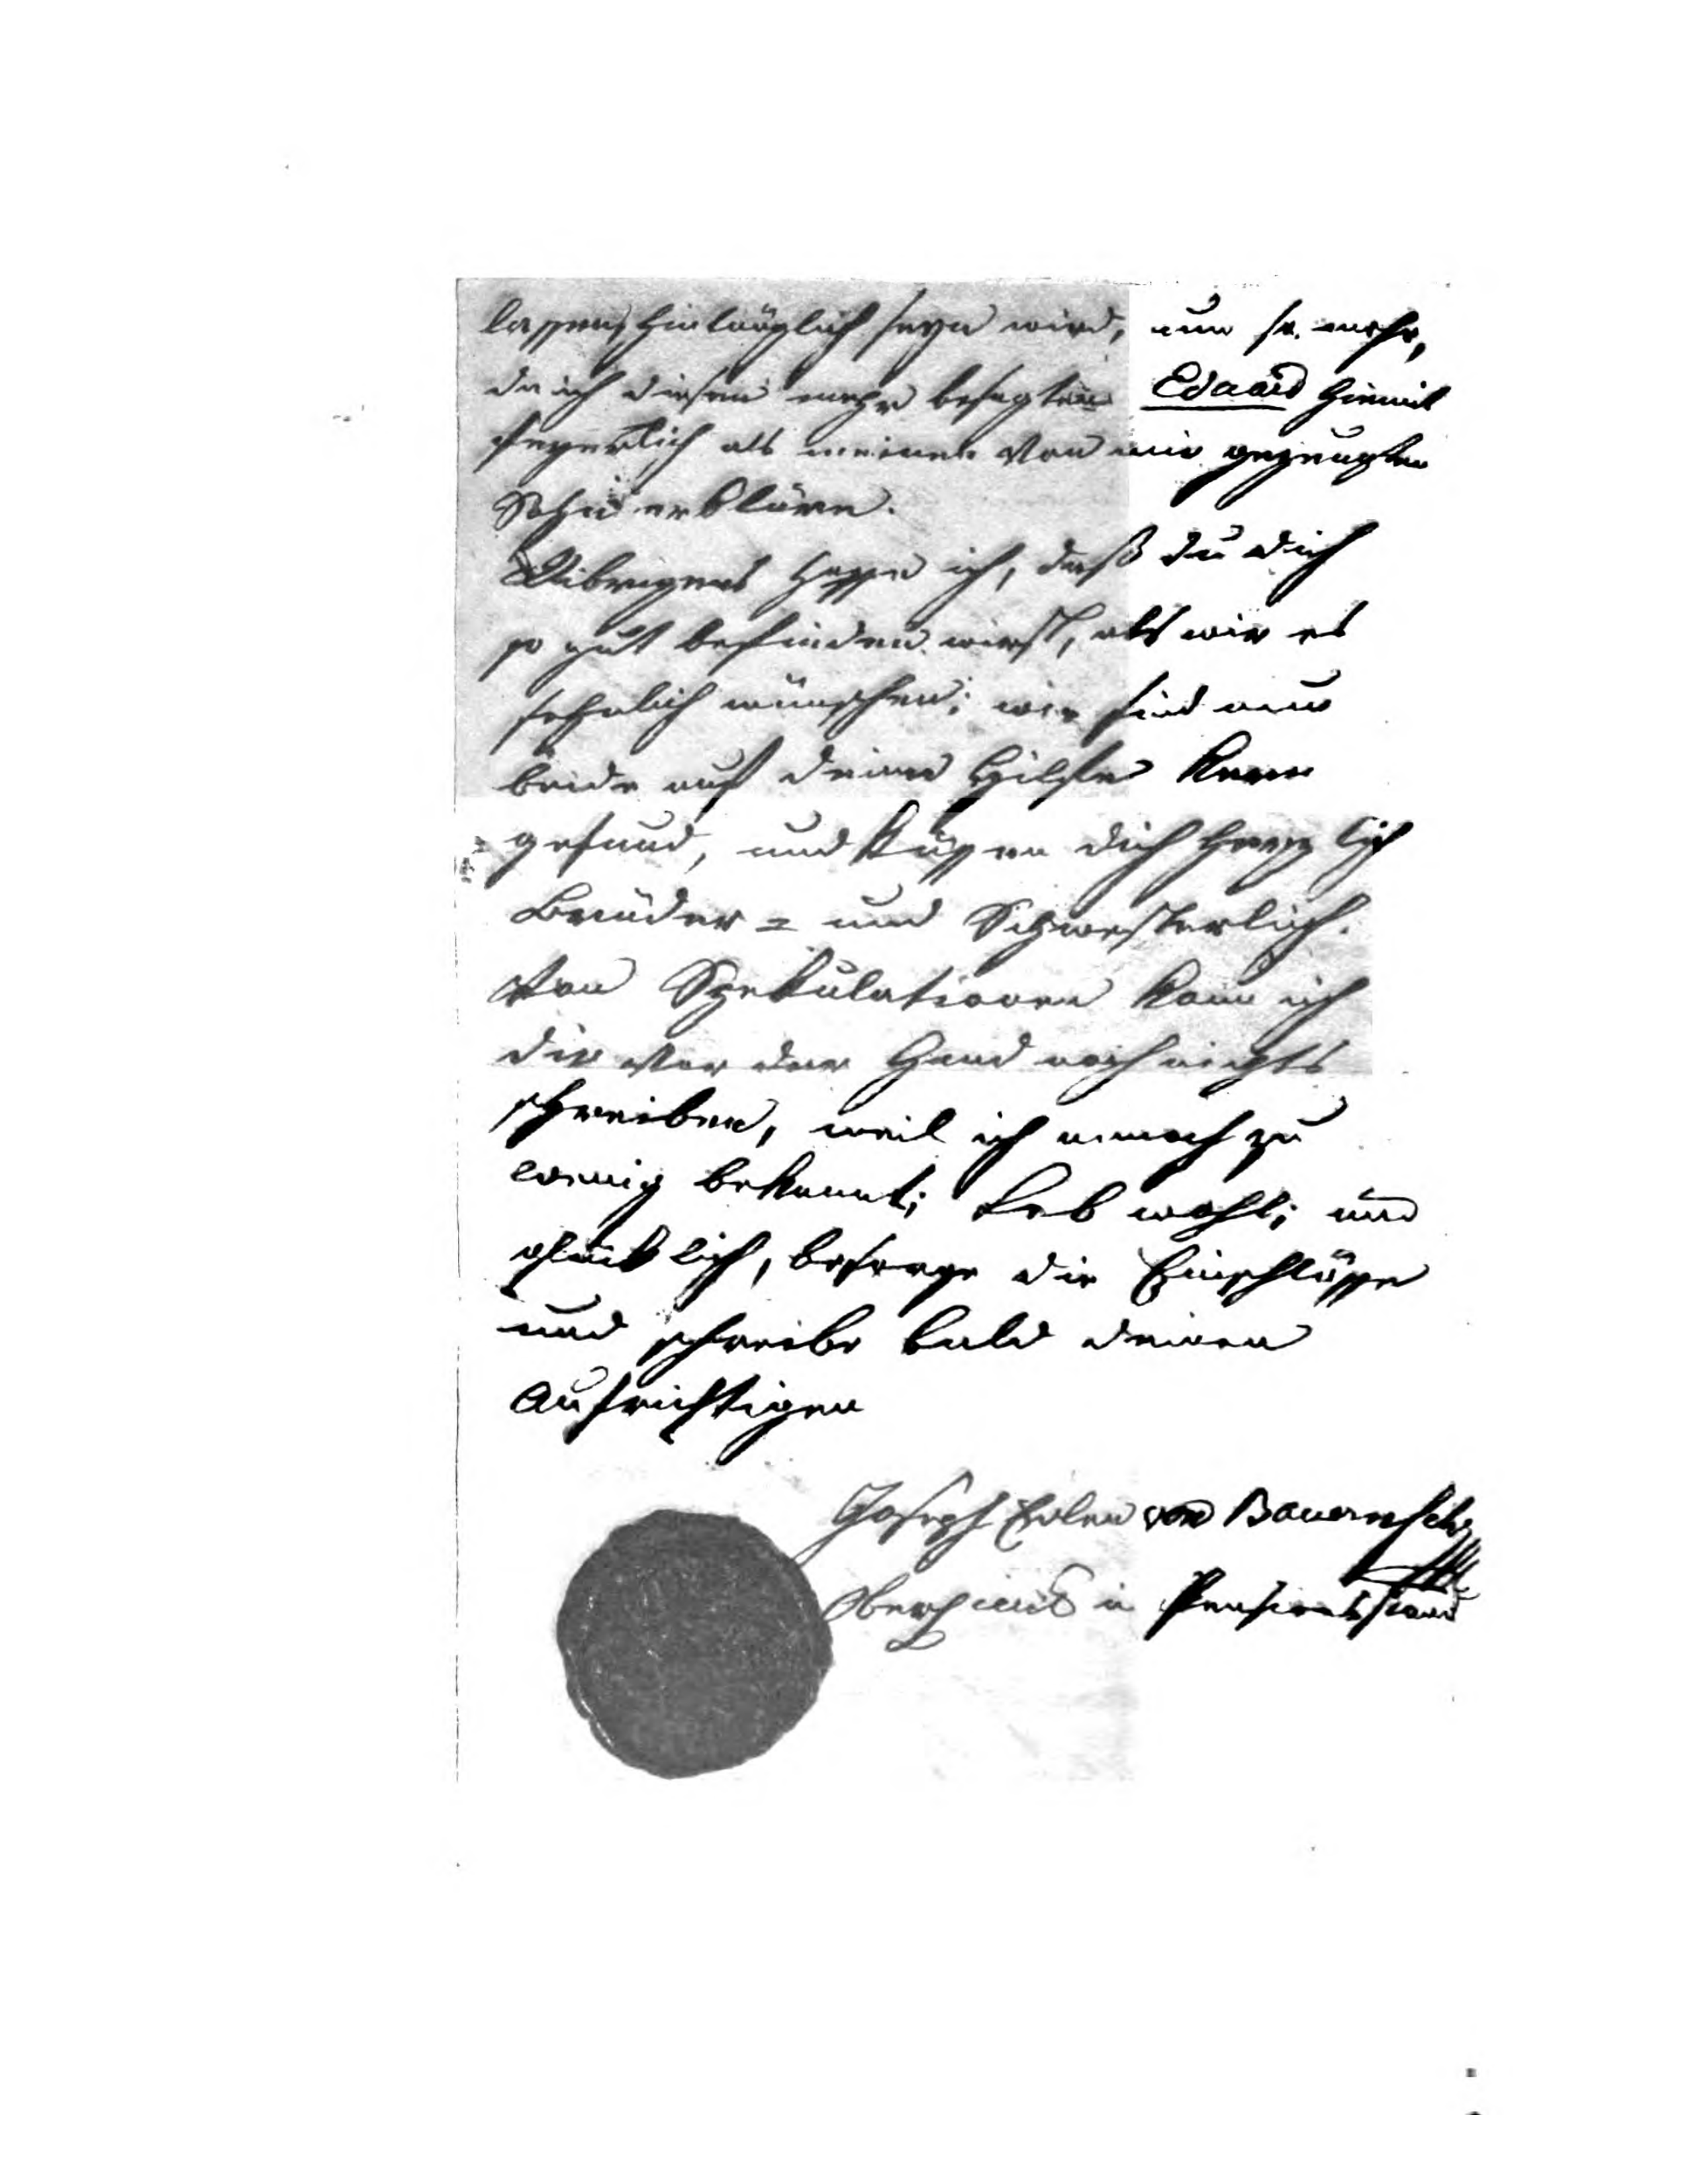 lassen, hinlänglich seyn wird, um so mehr,
da ich diesen mehr besagten Eduard hiemit
feyerlich als meinen von mir gezeugten
Sohn erkläre.
Uibrigens hoffe ich, daß du dich
so gut befinden wirst, als wir es
sehnlich wünschen; wir sind nun
beide auf deine Hilfe
gesund, und küssen dich herzlich
Brüder- und Schwesterlich.
Von Spekulationen kann ich
dir vor der Hand noch nichts
schreiben, weil ich noch zu
wenig bekannt; Leb wohl; und
glücklich, besorge die Einschlüsse
und schreibe bald deinen
aufrichtigen
Joseph Edlen von Bauernfeld
in Pensionsstand